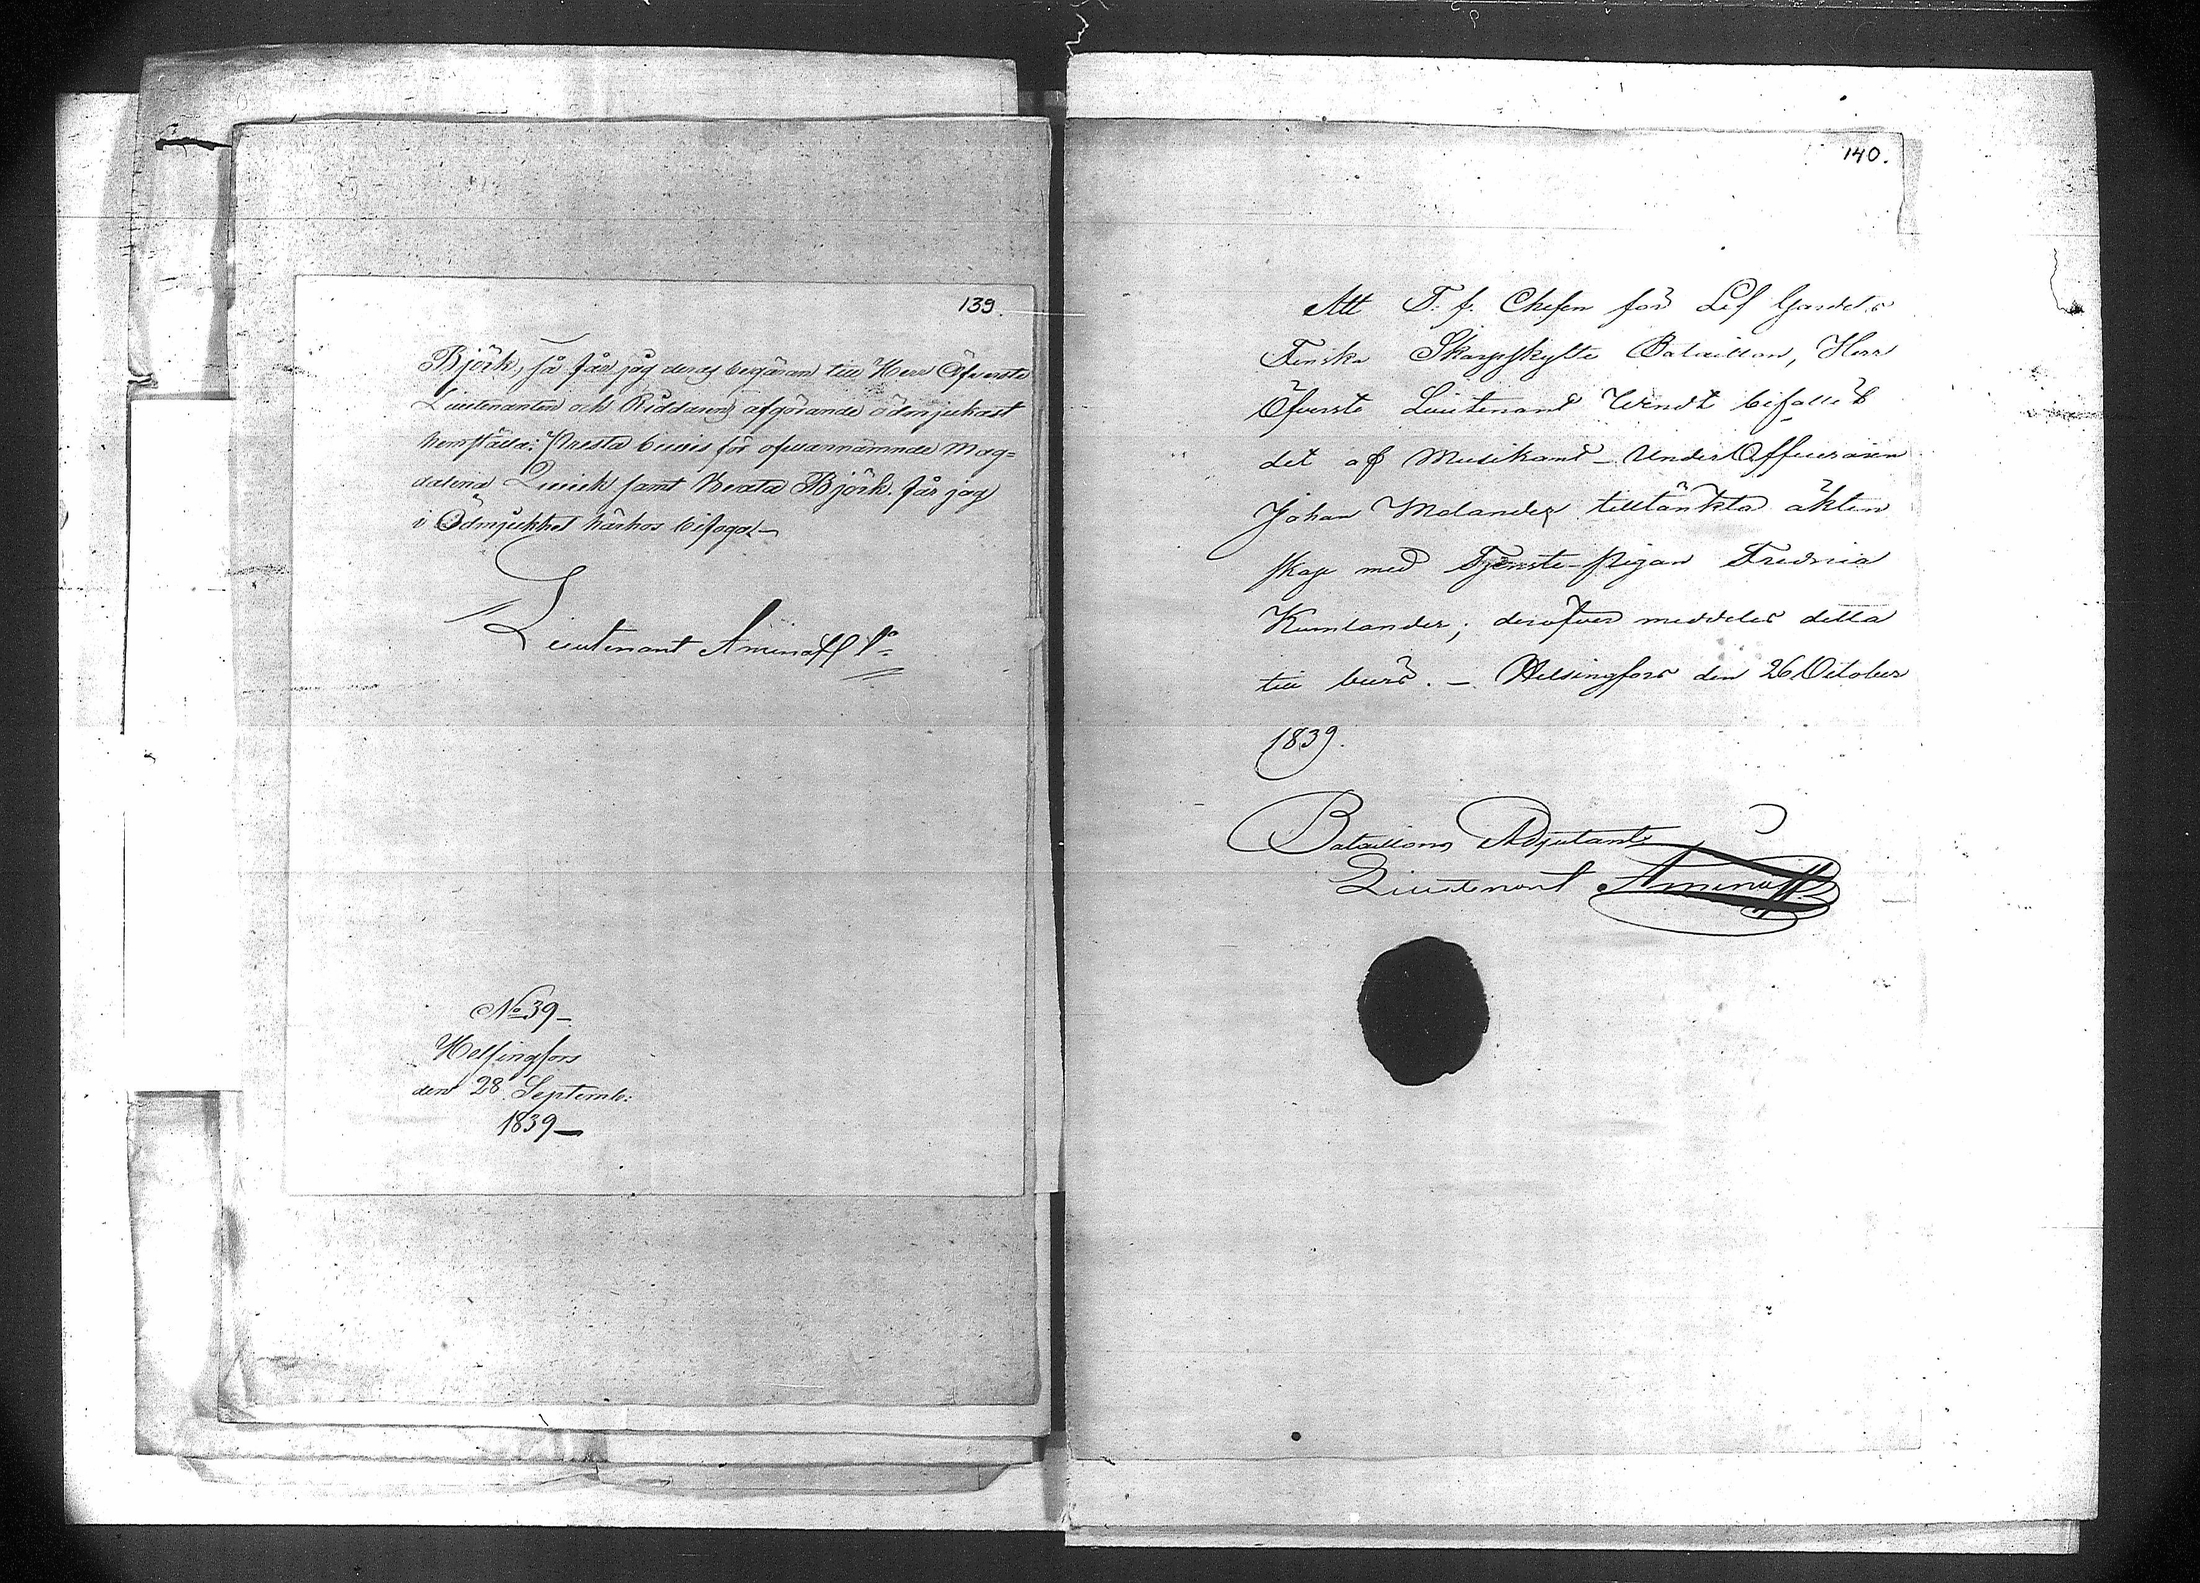 139.
Björk, så får jag deras begäran till Herr Öfverste
Lieutenanten och Riddarens afgörande ödmjukast
hemställa: Presta bevis för ofvannämnde Mag=
dalena Qvick samt Beata Björk får jag
i Ödmjukhet härhos bifoga—
Lieutenant Aminoff
No 39—
Helsingfors
den 28 Septemb:
1839—
140.
Att T. f. Chefen för Lif Gardets
Finska Skarpskytte Bataillon, Herr
Öfverste Lieutenant Wendt bifallit
det af Musikant-UnderOfficeraren
Johan Melander tilltänkta äkten
skap med Tjenste-pigan Fredrica
Kumlander; deröfver meddelas detta
till bevis. — Helsingfors den 26 October
1839.
Bataillons Adjutant
Lieutenant Aminoff